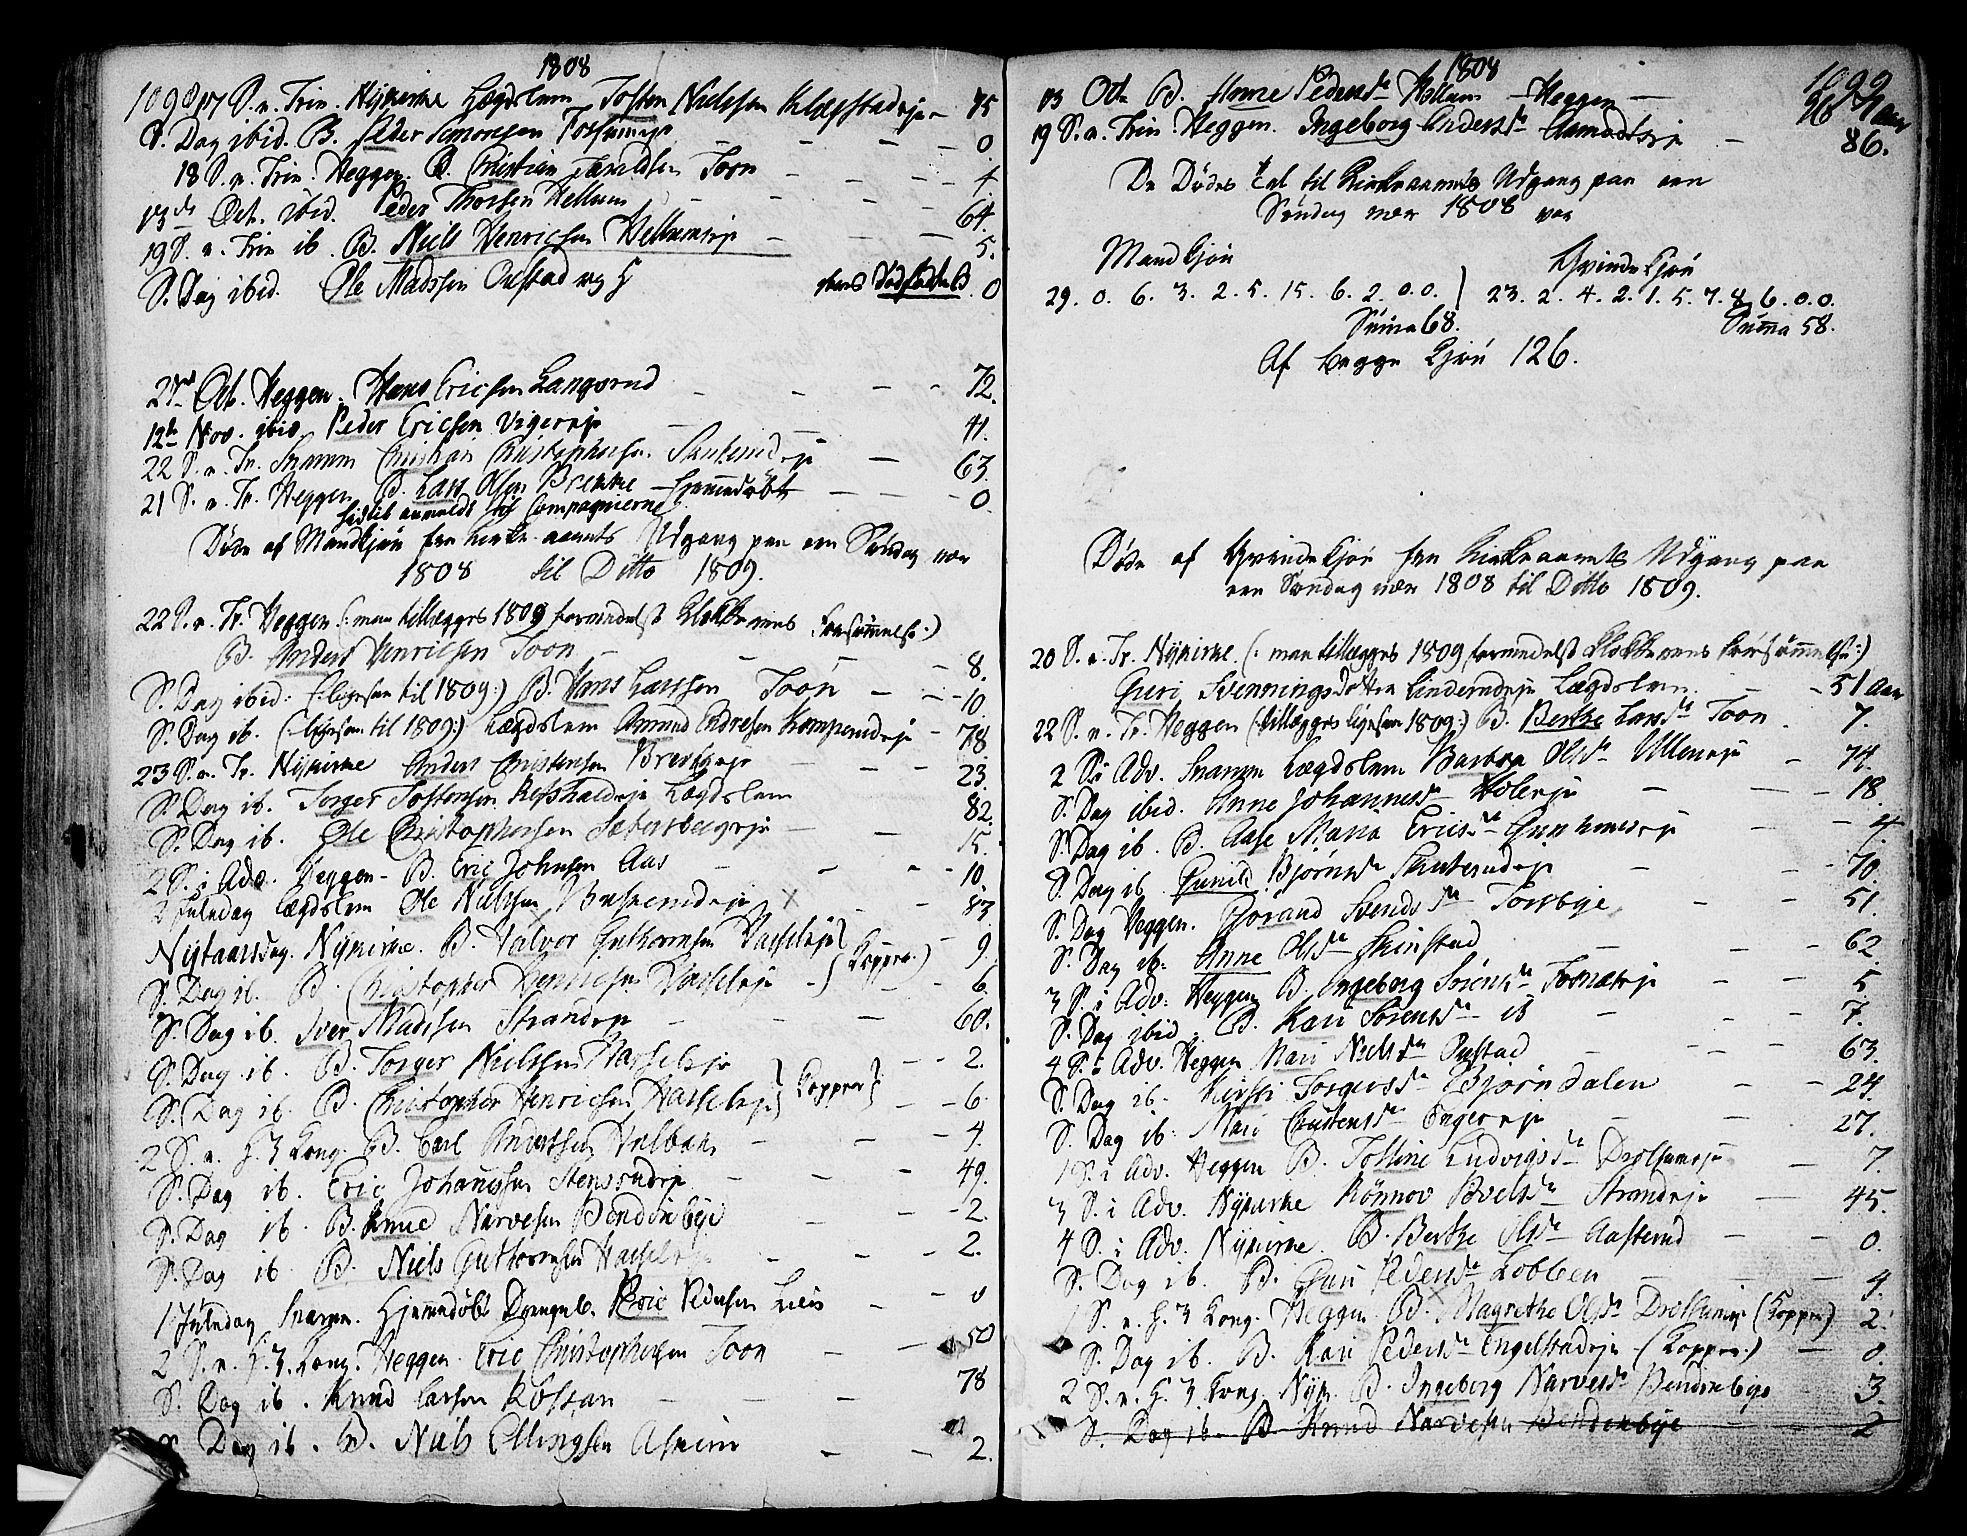 1808
1098 17 S. a. Trin. Nykirke Lægdslem Josten Nielssen Klægstadeje - 75
S. Dag ibid. B. Peder Simonsen Fossumeje - 0
18 S. a. Trin. Heggen. B. Christian Jarildsen Toon - 4.
13de Oct. ibid. Peder Thorsen Hellum - 64.
19 S. a. Trin ib. B. Niels Henrichsen Hellumseje - 5.
S. Dag ibid. Ole Madssen Oustad og H dødfødt B. 0
27de Oct. Heggen. Hans Ericsen Langerud - 72.
12te Nov. ibid. Peder Ericsen Vigereje - 41.
22 S. a. Tr. Snarum Christian Christophersen Skuterudeje - 63.
21 S. a. Tr. Heggen B. Lars Olsen Brekke Hjemmedøbt - 0
Compagnierne
Døde af Mandkjøn fra Kirke-aarets Udgang paa een Søndag nær
1808 til Ditto 1809.
22 S. a. Tr. Heggen (: maa tillægges 1809 formedelst Klokkerens Forsømmelse :)
B. Anders Henrichsen Toon - 8.
S. Dag ibid: (: ligesaa til 1809 :) B. Hans Larssen Toon - 10
S. Dag ib. (: ligesaa til 1809 :) Lægdslem Amund Andresen Komperudeje - 78
23 S. a. Tr. Nykirke Anders Christensen Breckeeje - 23.
S. Dag ib. Torger Jostensen Kopshaldeje Lægdslem 82.
S. Dag ib. Ole Christophersen Sætersbergeje - 15.
2 S. i Adv. Heggen - B. Eric Johnsen Aas - 10
2 Juledag Lægdslem Ole Nielssen Buskerudeje - 83
Nytaarsdag. Nykirke. B. Halvor Guttormsen Hasseleje - 9.
S. Dag ib. B. Christopher Henrichsen Hasseleje (Kopper.) - 6
S. Dag ib. Iver Madssen Strandeje - 60.
S. Dag ib. B. Torger Nielssen Hasseleje - 2.
S. Dag ib. B. Christopher Henrichsen Hasseleje } Kopper } - 6.
2 S. a. H. 3 Kong. B. Carl Anderssen - 4.
S. Dag ib. Eric Johanssen Stensrudeje - 49.
S. Dag ib. B. Knud Narvesen Bendenbye - 2.
S. Dag ib. B. Niels Guttormsen Hasseleje - 2.
1 Juledag Snarum. Hjemmedøbt Drengeb. Eric Pedersen Lien - 0
2 S. a. H. 3. Kong. Heggen. Eric Christophersen Toon - 50
S. Dag ib. Knud Larsen Kolstan - 78
S. Dag ib. B. Niels Ellingsen Askim - 2.
1808
1099
13 Oct. B. Anne Pedersdr Hellum - Heggen - Aar
19 S. a. Trin. Heggen. Ingeborg Andersdr Aamodtseje - 86.
De Dødes Tal til Kirkeaarets Udgang paa een
Søndag nær 1808 var
Mandkjøn Qvindekjøn
29. 0. 6. 3. 2. 5. 15. 6. 2. 0. 0. | 23. 2. 4. 2. 1. 5. 7. 8. 6. 0. 0.
Summa 68. Summa 58.
Af begge Kjøn 126.
Døde af Qvindekjøn fra Kirkeaarets Udgang paa
een Søndag nær 1808 til Ditto 1809.
20 S. a. Tr. Nykirke. (: maa tillægges 1809 formedelst Klokkerens Forsømmelse :)
Guri Svenningsdotter Linderudeje Lægdslem. - 51 Aar
22 S. a. Tr. Heggen (: tillægges ligesaa 1809 :) B. Berthe Larsdr Toon - 7.
2 S. i Adv. Snarum Lægdslem Barbra Olsdr Ulleneje - 74.
S. Dag ibid. Anne Johannesdr Holeeje - 18.
S. Dag ib. B. Aase Maria Ericsdr Gunhuseje - 4
S. Dag ib. Gunild Bjørnsdr Skuterudeje - 70.
S. Dag Heggen. Gjørand Svendsdr Torsbye - 51.
S. Dag ib. Anne Olsdr Skinstad - 62.
3 S. i Adv. Heggen B. Ingeborg Sørensdr Toonæseje - 5
S. Dag ibid. B. Kari Sørensdr ib - 7.
4 S. i Adv. Heggen Mari Nielsdr Pustad - 63.
S. Dag ib. Kirsti Torgersdr Bjørndalen - 24.
S. Dag ib. Mari Christensdr Engereje - 27.
1 S. i Adv. Heggen B. Tolline Ludvigsdr Drolsumeje - 7.
3 S. i Adv. Nykirke Rønnov Povelsdr Strandeje - 45.
4 S. i Adv. Nykirke. B. Berthe Olsdr Aasterud - 0.
S. Dag ib. B. Guri Pedersdr Lobben - 4.
1 S. a. H. 3 Kong. Heggen B. Magrethe Olsdr Drolsumeje (Kopper) 2.
S. Dag ib. B. Kari Pedersdr Engelstadeje - (Kopper.) - 0.
2 S. a. H. 3 Kong. Nyk. B. Ingeborg Narvesdr Bendenbye 3.
S. Dag ib. B. Knud Narvesen Bendenbye - 2